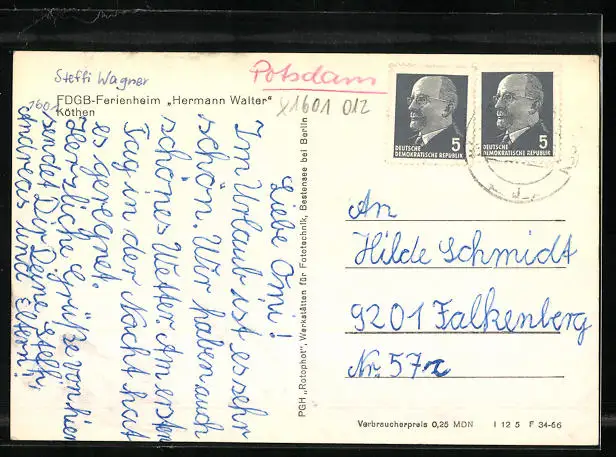 Steffi Wagner
FDGB-Ferienheim „Hermann Walter“
Köthen
Potsdam
X1601 012
Liebe Omi!
Im Urlaub ist es sehr
schön. Wir haben auch
schönes Wetter. Am ersten
Tag in der Nacht hat
es geregnet.
Herzliche Grüße von hier
sendet Dir Deine Steffi,
Andreas und Eltern!
PGH „Rotophot“, Werkstätten für Fototechnik, Bestensee bei Berlin
5
DEUTSCHE
DEMOKRATISCHE REPUBLIK
5
DEUTSCHE
DEMOKRATISCHE REPUBLIK
An
Hilde Schmidt
9201 Falkenberg
Nr. 57
Verbraucherpreis 0,25 MDN I 12 5 F 34-66